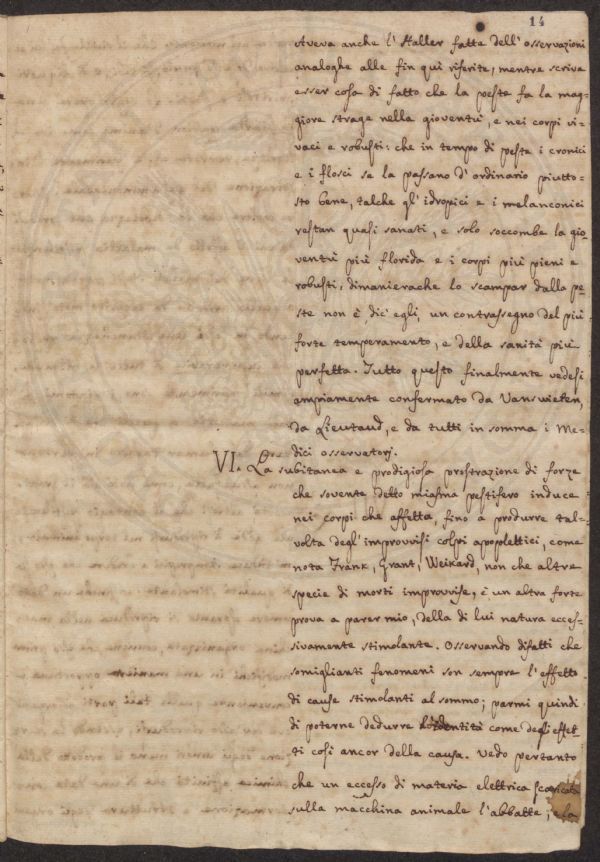 14
Aveva anche l'Haller fatte dell'osservazioni
analoghe alle fin quì riferite, mentre scriva
esser cosa di fatto che la peste fa la mag-
giore strage nella gioventù, e nei corpi vi-
vaci e robusti: che in tempo di peste i cronici
e i flosci se la passano d'ordinario piutto-
sto bene, talche gl'idropici e i melanconici
restan quasi sanati, e solo soccombe la gio-
ventù più florida e i corpi più pieni e
robusti, dimanierache lo scampar dalla pe-
ste non è, dic'egli, un contrassegno del più
forte temperamento, e della sanità più
perfetta. Tutto questo finalmente vedesi
ampiamente confermato da Vanswieten,
da Lieutaud, e da tutti in somma i Me-
dici osservatorj.
VI. La subitanea e prodigiosa prostrazione di forze
che sovente detto miasma pestifero induce
nei corpi che affetta, fino a produrre tal-
volta degl'improvvisi colpi apoplettici, come
nota Frank, Grant, Weikard, non che altre
specie di morti improvvise, è un altra forte
prova a parer mio, della di lui natura ecces-
sivamente stimolante. Osservando difatti che
somiglianti fenomeni son sempre l'effetto
di cause stimolanti al sommo; parmi quindi
di poterne dedurre l'identità come degli effet-
ti così ancor della causa. Vedo pertanto
che un eccesso di materia elettrica scaricata
sulla macchina animale l'abbatte; e la